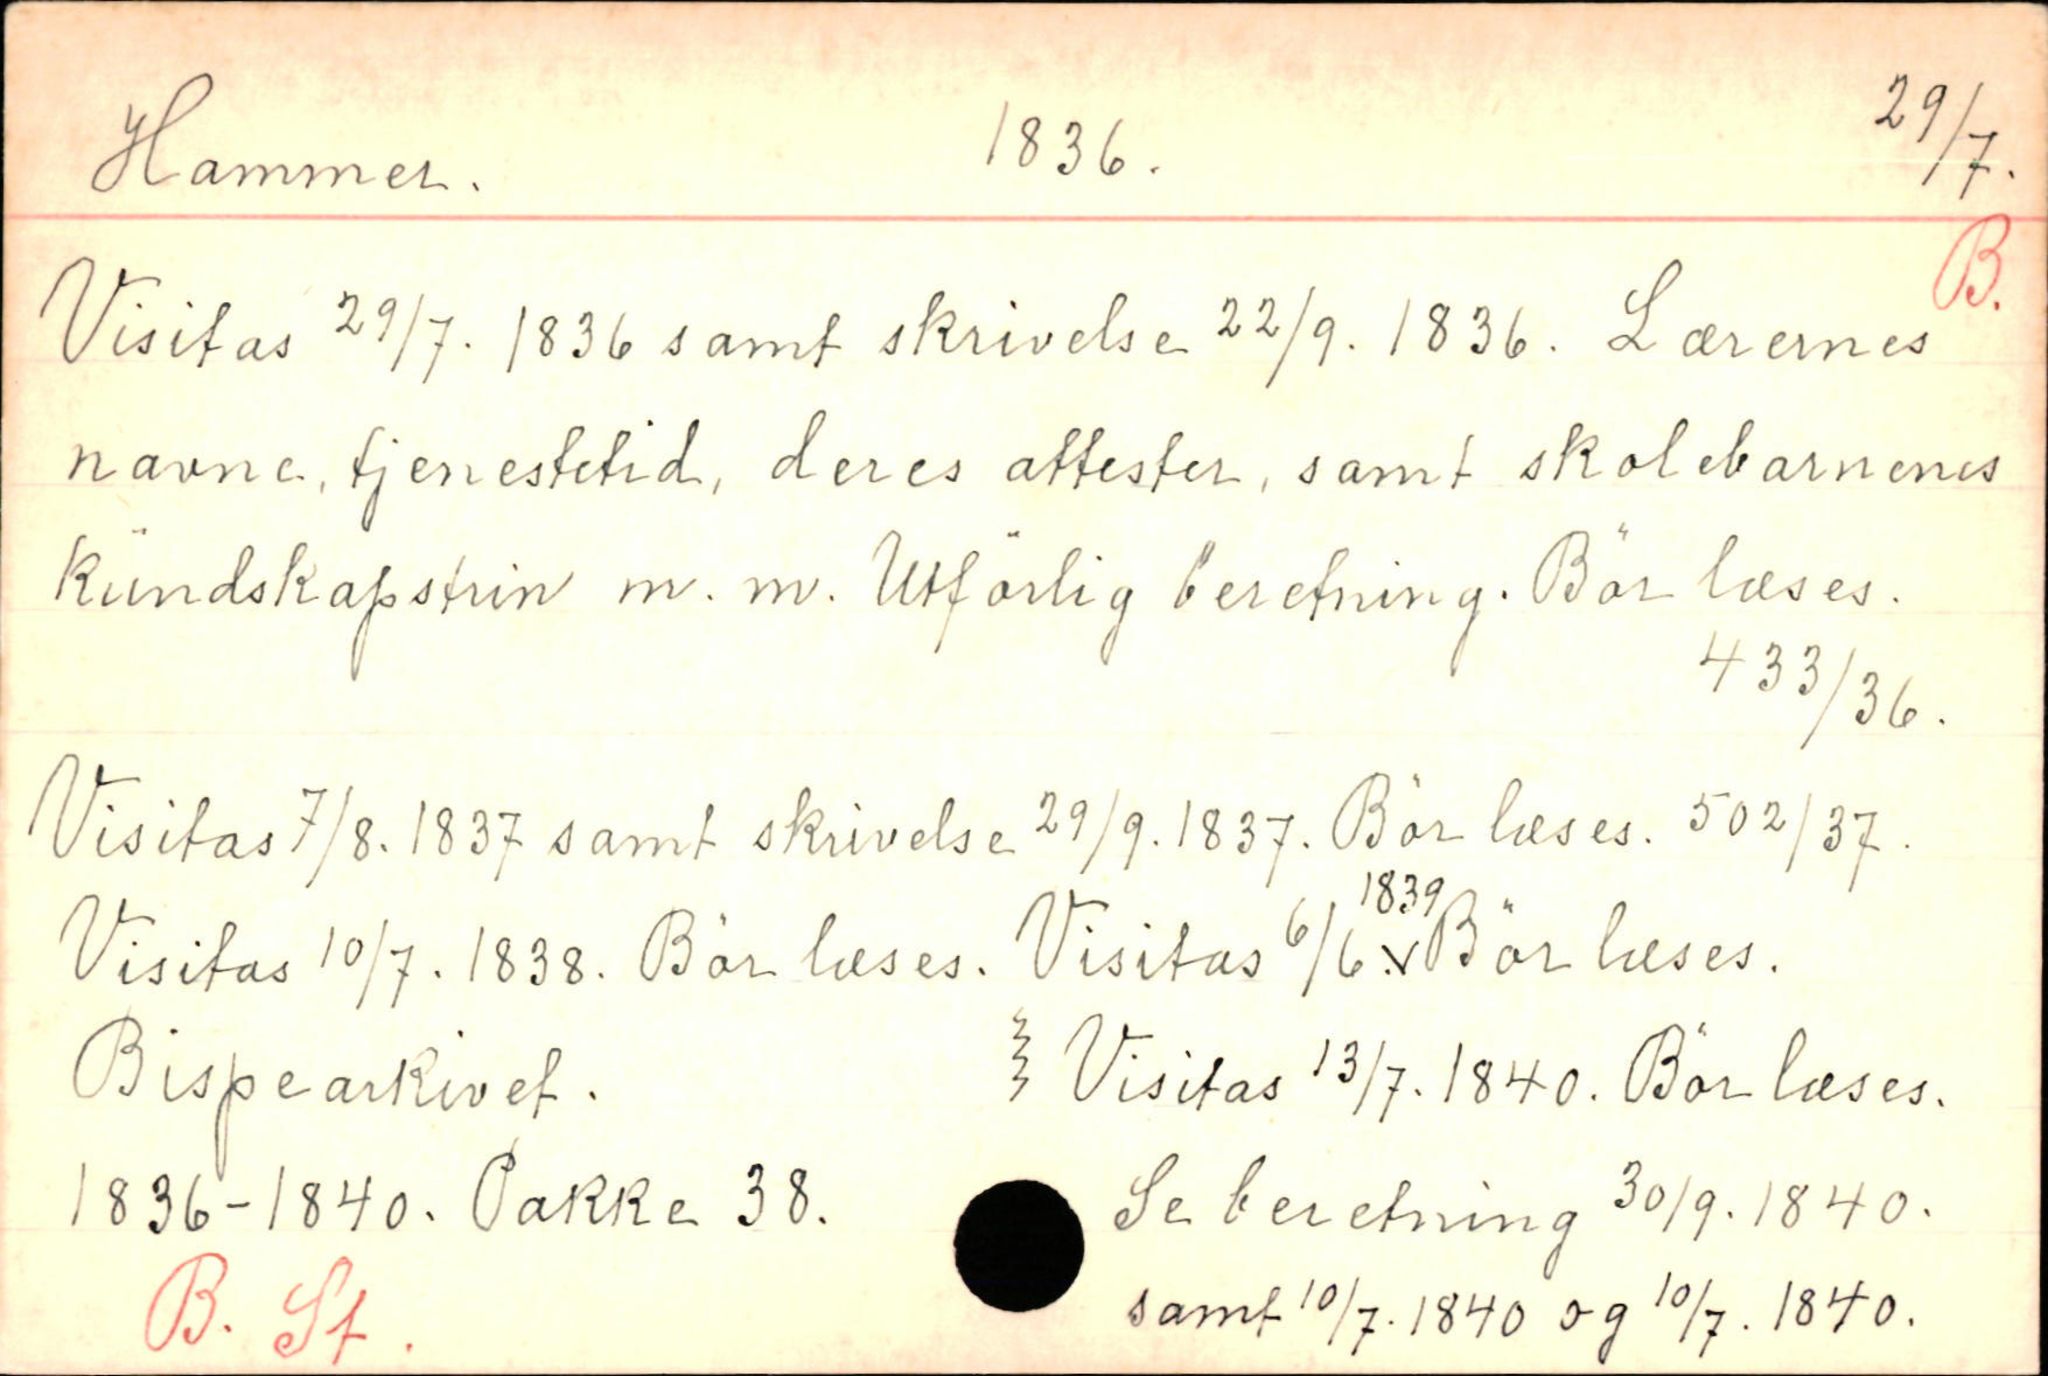 Hammer. 1836. 29/7.
B.
Visitas 29/7. 1836 samt skrivelse 22/9. 1836. Lærernes
navne, tjenestetid, deres attester, samt skolebarnenes
kündskapstrin m. m. Utförlig beretning. Bör læses.
433/36.
Visitas 7/8. 1837 samt skrivelse 29/9. 1837. Bör læses. 502/37.
Visitas 10/7. 1838. Bör læses. Visitas 6/6. 1839 Bör læses.
Bispearkivet. Visitas 13/7. 1840. Bör læses.
1836-1840. Pakke 38. Se beretning 30/9. 1840.
B. St. samt 10/7. 1840 og 10/7. 1840.